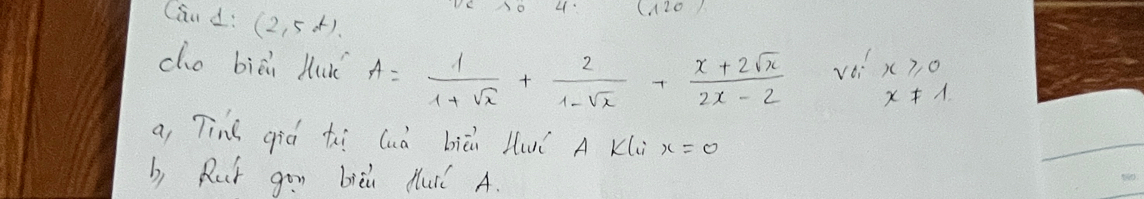 Câu 1: (2,5 đ).
Cho biểu thức A = \frac{1}{1+\sqrt{x}} + \frac{2}{1-\sqrt{x}} + \frac{x+2\sqrt{x}}{2x-2} với x ⩾ 0
x ≠ 1.
a, Tính giá trị của biểu thức A khi x = 0
b, Rút gọn biểu thức A.